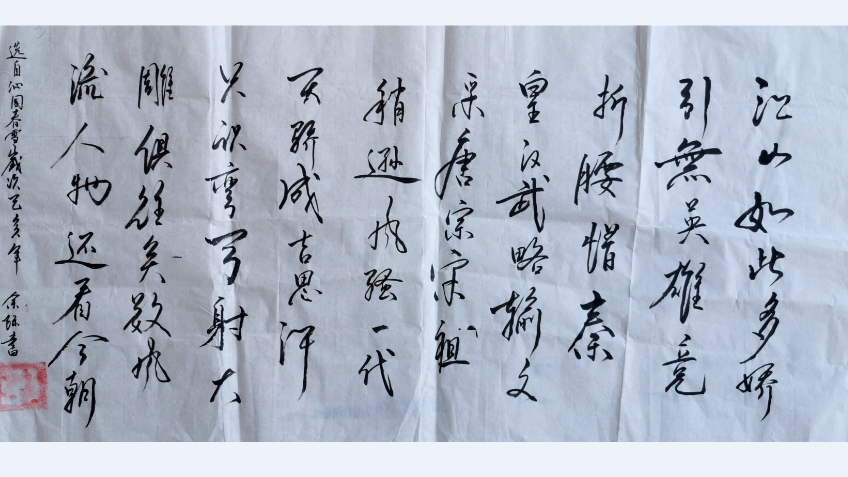 江山如此多娇
引無英雄竞
折腰惜秦
皇汉武略输文
采唐宗宋祖
稍逊风骚一代
天骄成吉思汗
只识弯弓射大
雕俱往矣数风
流人物还看今朝
选自沁园春雪岁次己亥年 余 书